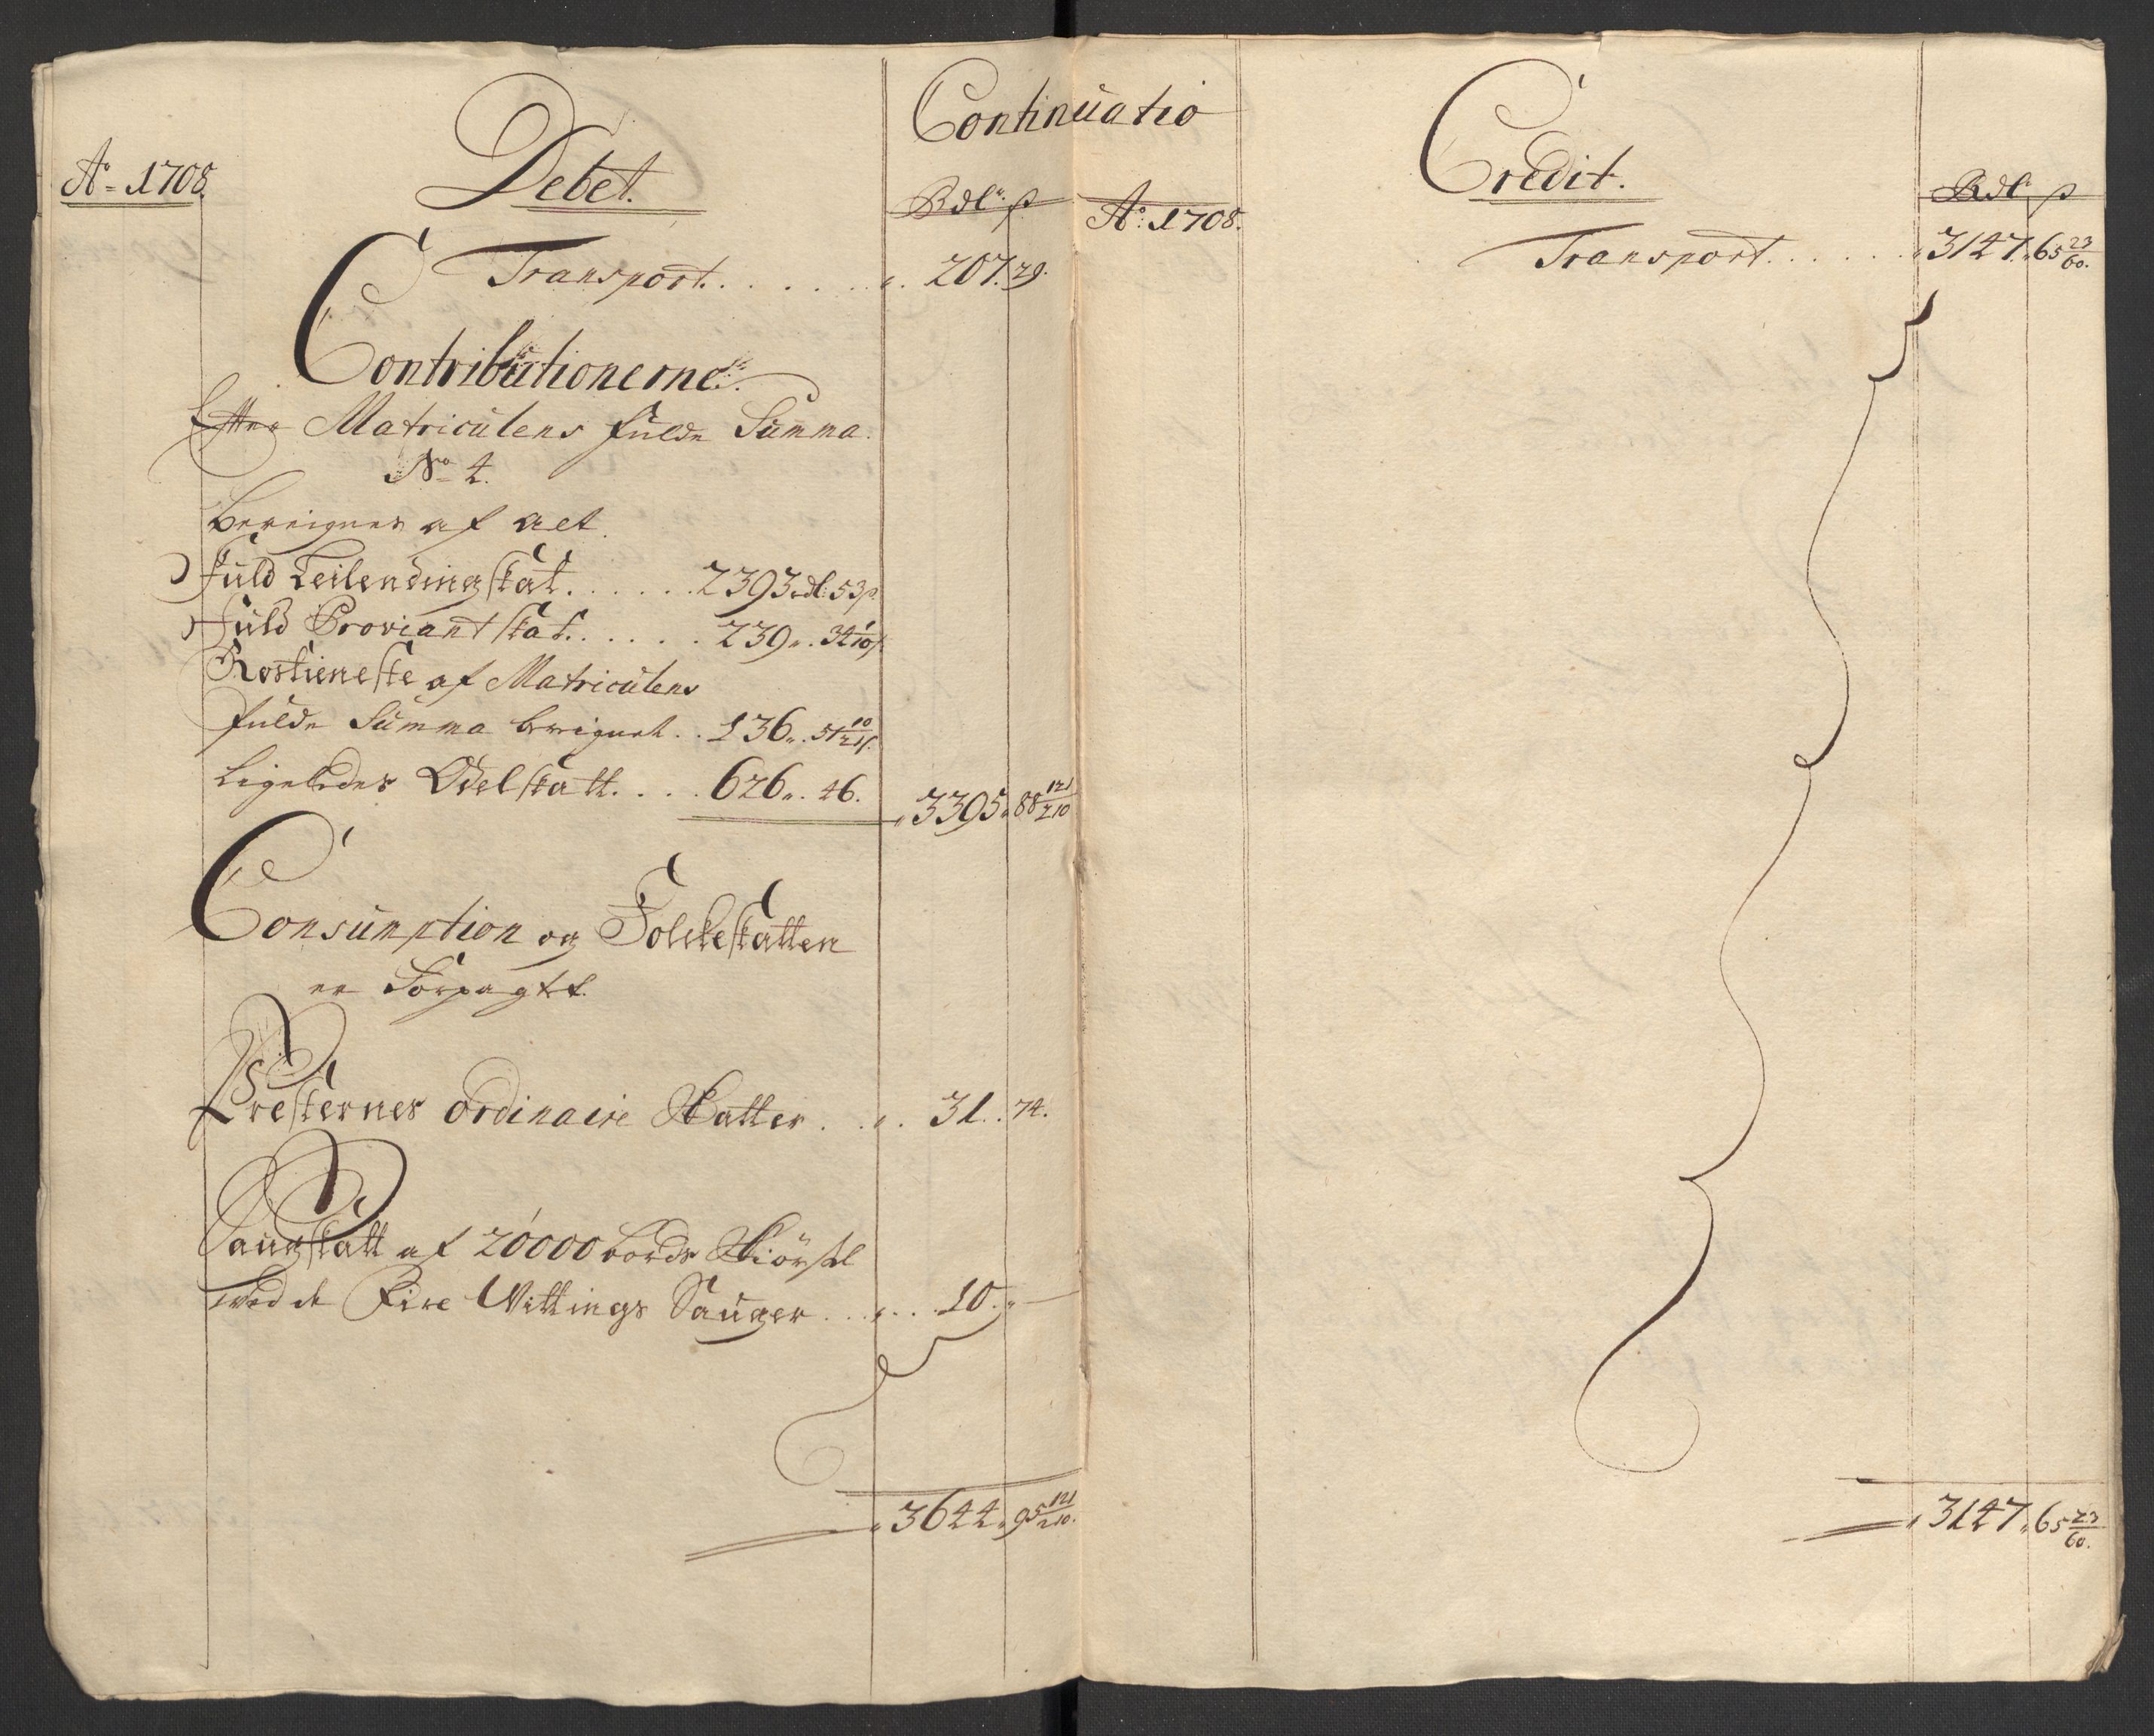 Continuatio
Aº 1708.
Debet.
Rdlr. ß
Transport. . . . . . . . 207. 29.
Contributionerne.
Efter Matriculens fulde Summa.
No 4.
Bereignes af alt.
Fuld Leilendingskat. . . . . . 2393 rdl: 53 ß
Fuld Proviantskat. . . . . . 239 „. 34 1/10 ß
Rostieneste af Matriculens
fulde Summa bereignet . . 136 „. 51 10/21 ß.
Ligeledes Odelskatt. . . . 626 „. 46. „ 3395 „ 88 121/210
Consumption og Folckeskatten
er Forpagtet.
Presternes ordinaire Skatter . . „. 31. . 74.
Saugskatt af 20000 bords Skiørsel
ved de Fire Vittings Sauger . . . „. . . 10. „ —
„ 3644 „ 95 121/210.
Aº: 1708.
Credit.
Rdlr ß
Transport. . . . . . „ 3147 „ 65 23/60.
„ 3147 „ 65 23/60.